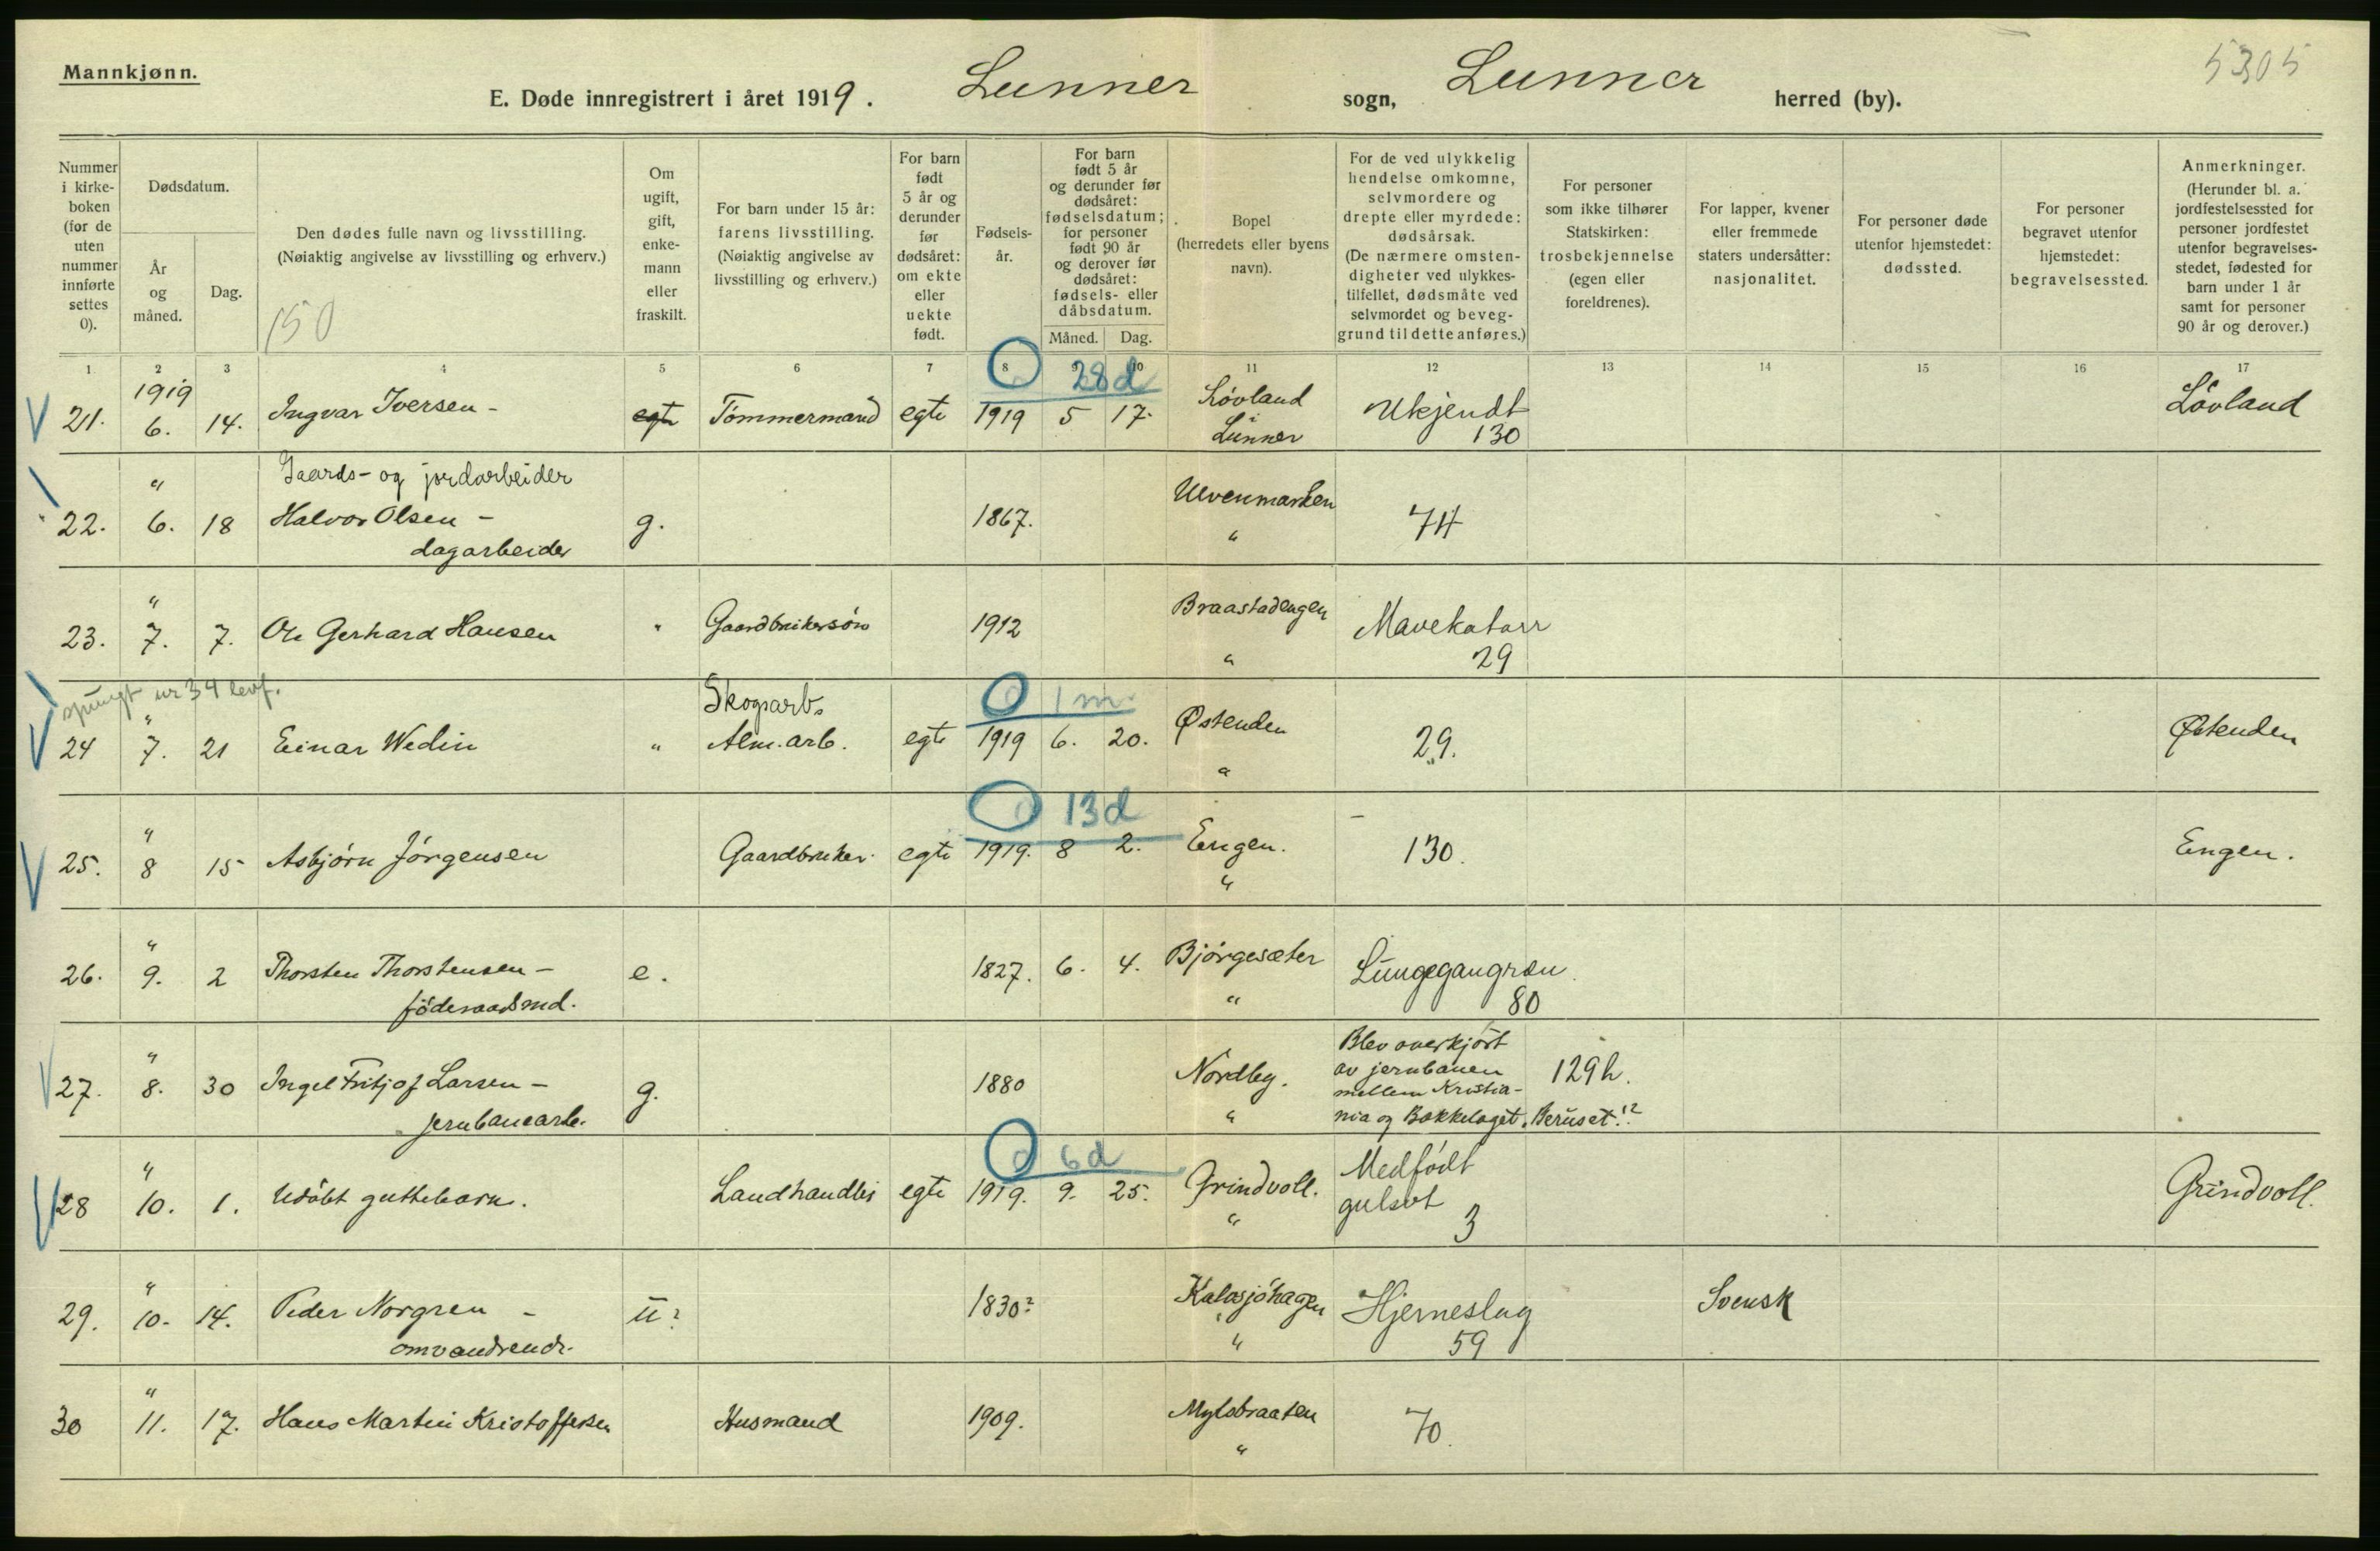 Mannkjønn.
5305
E. Døde innregistrert i året 1919. Lunner sogn, Lunner herred (by).
Nummer i kirke-boken (for de uten nummer innførte settes 0).
Dødsdatum.
År og måned.
Dag.
Den dødes fulle navn og livsstilling.
(Nøiaktig angivelse av livsstilling og erhverv.)
150
Om ugift, gift, enke-mann eller fraskilt.
For barn under 15 år: farens livsstilling.
(Nøiaktig angivelse av livsstilling og erhverv.)
For barn født 5 år og derunder før dødsåret: om ekte eller uekte født.
Fødsels-år.
For barn født 5 år og derunder før dødsåret: fødselsdatum; for personer født 90 år og derover før dødsåret: fødsels- eller dåbsdatum.
Måned. Dag.
Bopel (herredets eller byens navn).
For de ved ulykkelig hendelse omkomne, selvmordere og drepte eller myrdede: dødsårsak.
(De nærmere omsten-digheter ved ulykkes-tilfellet, dødsmåte ved selvmordet og beveg-grund til dette anføres.)
For personer som ikke tilhører Statskirken: trosbekjennelse (egen eller foreldrenes).
For lapper, kvener eller fremmede staters undersåtter: nasjonalitet.
For personer døde utenfor hjemstedet: dødssted.
For personer begravet utenfor hjemstedet: begravelsessted.
Anmerkninger.
(Herunder bl. a. jordfestelsessted for personer jordfestet utenfor begravelses-stedet, fødested for barn under 1 år samt for personer 90 år og derover.)
1 2 3 4 5 6 7 8 9 10 11 12 13 14 15 16 17
28 d
1919
21. 6. 14. Ingvar Iversen - egte Tømmermand egte 1919 5 17. Løvland Lunner Ukjendt 130 Løvland
Gaards- og jordarbeider
22. " 6. 18 Halvor Olsen - dagarbeider g. 1867. Ulvenmarken " 74
23. " 7. 7. Ole Gerhard Hansen " Gaardbrukersøn 1912 Braastadengen " Mavekatarr 29
nr 34 levf.
Skogsarb. 1 m
24 " 7. 21 Einar Wedin " Alm. arb. egte 1919 6. 20. Østenden " 29. Østenden
13 d
25. " 8 15 Asbjørn Jørgensen Gaardbruker egte 1919. 8 2. Engen. " 130. Engen.
26. " 9. 2 Thorsten Thorstensen - føderaadsmd. e. 1827. 6. 4. Bjørgesæter " Lungegangræn 80
27. " 8. 30 Ingel Fritjof Larsen - jernbanearb. g. 1880 Nordby. " Blev overkjørt av jernbanen mellem Kristia-nia og Bækkelaget. Beruset!? 129 h.
6 d
28 " 10. 1. Udøbt guttebarn. Landhandler egte 1919. 9. 25. Grindvoll. " Medfødt gulsot 3 Grindvoll.
29. " 10. 14. Peder Norgren - omvandrende. u? 1830? Kalvsjøhagen " Hjerneslag 59 Svensk
30 " 11. 17. Hans Martin Kristoffersen Husmand 1909. Mylsbraaten " 70.